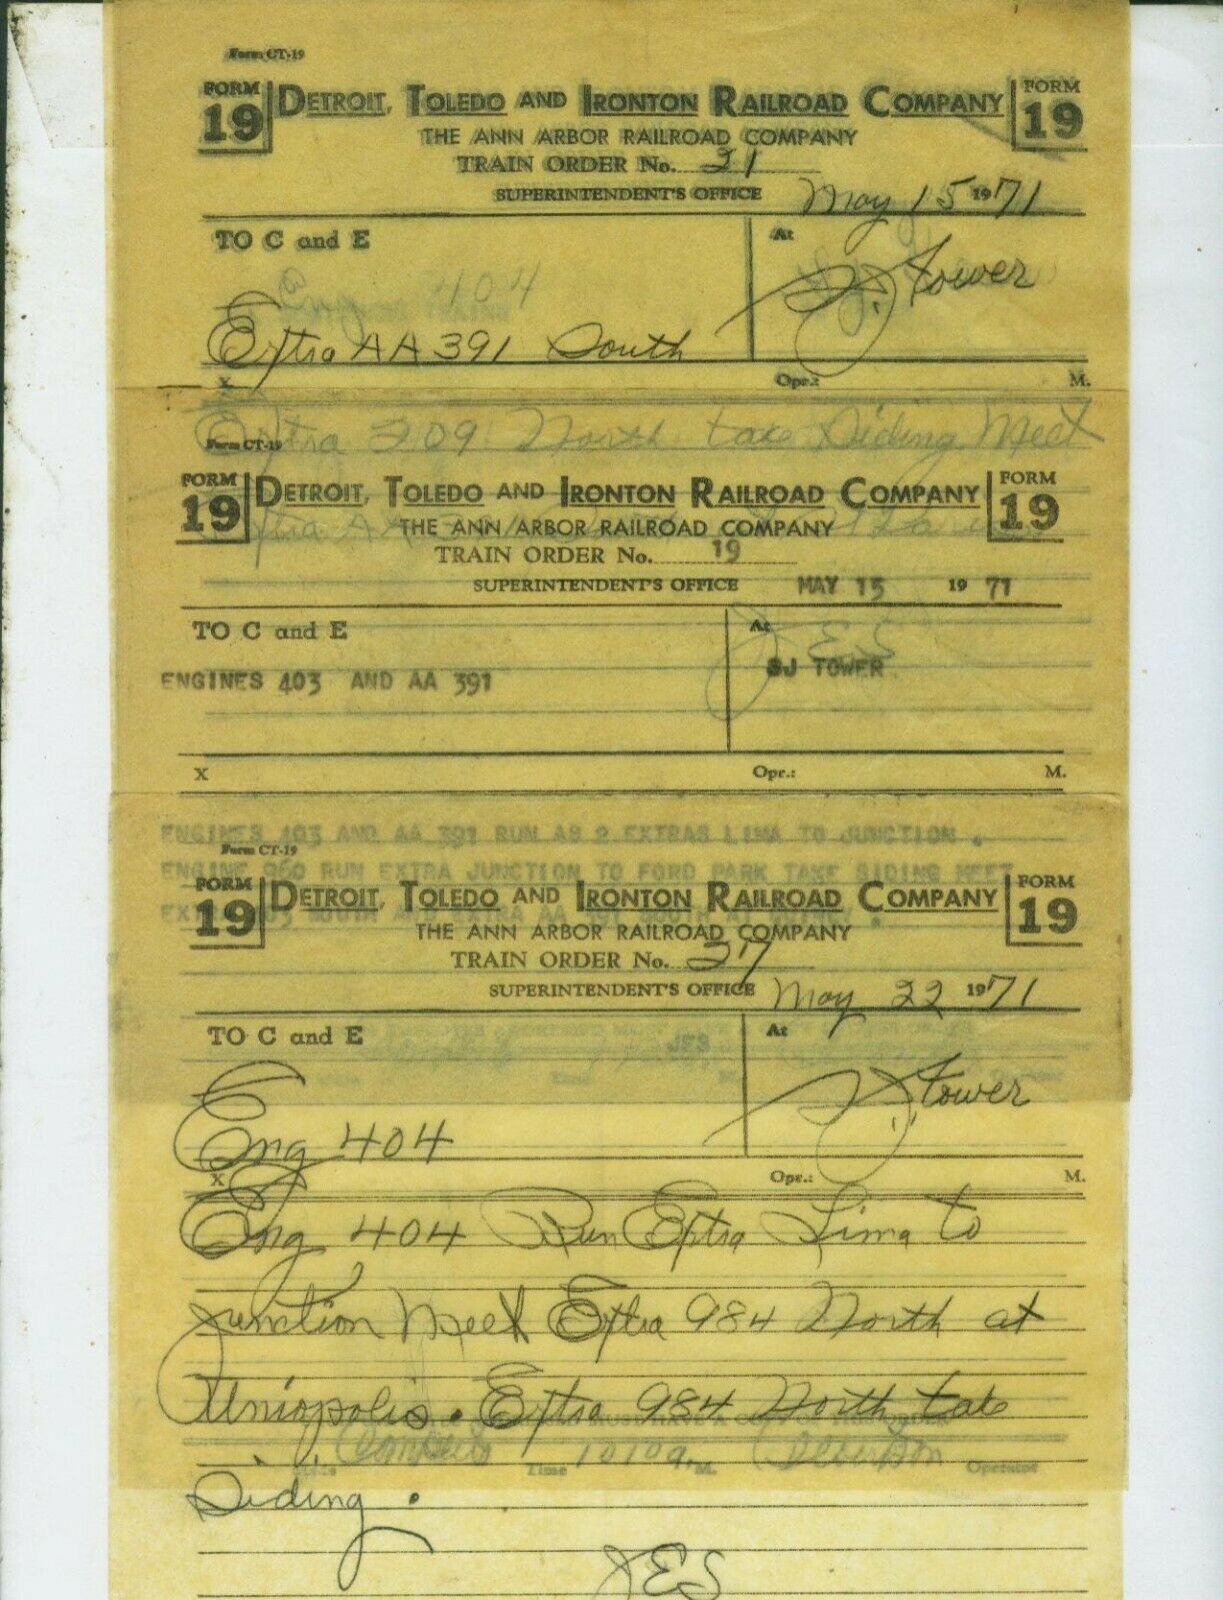 Form CT-19
FORM 19 DETROIT, TOLEDO AND IRONTON RAILROAD COMPANY FORM 19
THE ANN ARBOR RAILROAD COMPANY
TRAIN ORDER No. 21
SUPERINTENDENT'S OFFICE May 15 1971
TO C and E At
Eng 404
SJ Tower
Extra AA 391 South
X Opr.: M.
Extra 209 North take Siding Meet
Form CT-19
FORM 19 DETROIT, TOLEDO AND IRONTON RAILROAD COMPANY FORM 19
Extra AA 391
THE ANN ARBOR RAILROAD COMPANY
TRAIN ORDER No. 19
SUPERINTENDENT'S OFFICE MAY 15 19 71
TO C and E At
JES
ENGINES 403 AND AA 391 SJ TOWER
X Opr.: M.
ENGINES 403 AND AA 391 RUN AS 2 EXTRAS LIMA TO JUNCTION .
Form CT-19
ENGINE 960 RUN EXTRA JUNCTION TO FORD PARK TAKE SIDING MEET
FORM 19 DETROIT, TOLEDO AND IRONTON RAILROAD COMPANY FORM 19
EXTRA 403 SOUTH AND EXTRA AA 391 SOUTH AT
THE ANN ARBOR RAILROAD COMPANY
TRAIN ORDER No. 27
SUPERINTENDENT'S OFFICE May 22 1971
TO C and E At
JES
SJ Tower
Eng 404
X Opr.: M.
Eng 404 Run Extra Lima to
Junction Meet Extra 984 North at
Uniopolis. Extra 984 North take
Made Complete Time 1010 a. M. Operator
Siding.
JES